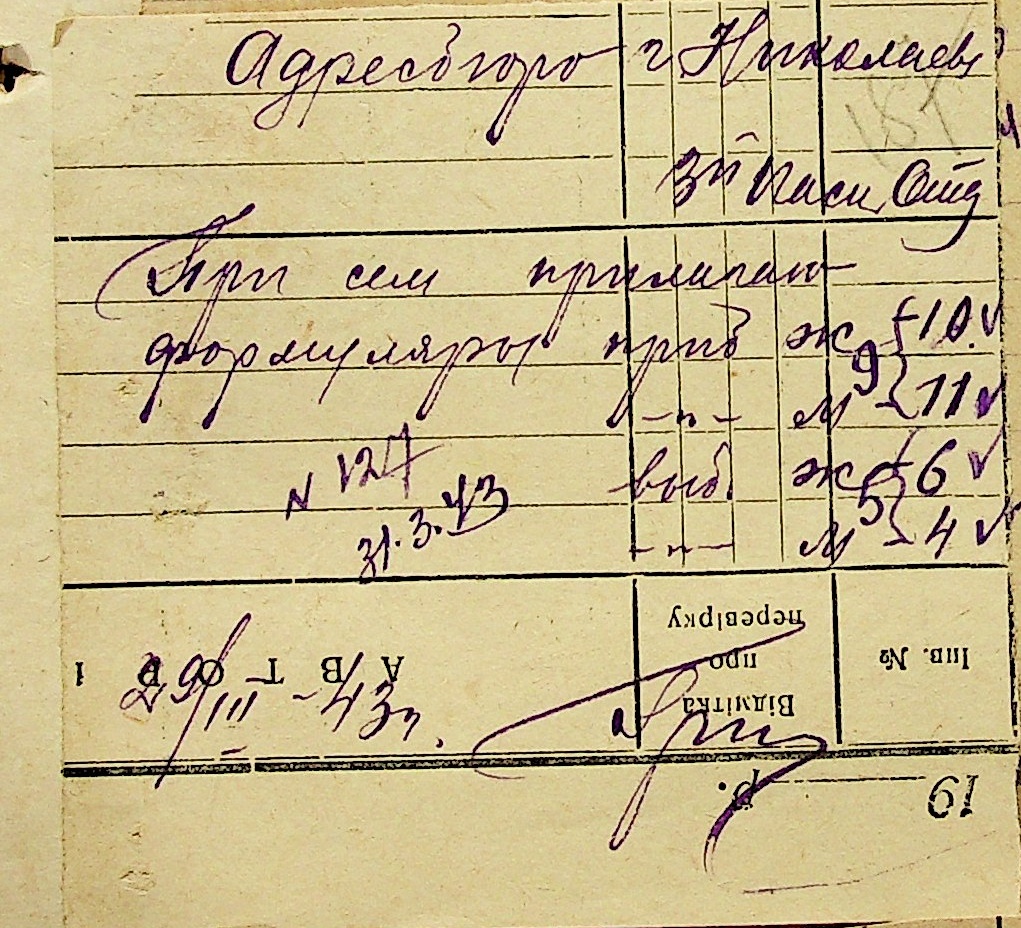 Адресбюро г. Николаев
3й Пасп. Отд
При сем прилагаю
формуляры приб ж - 10.
9
-"- м - 11
N 127 выб. ж - 6
5
31.3.43 -"- м - 4
Інв. №
Відмітка
про
перевірку
А В Т О Р
1
29/III - 43г.
19 р.